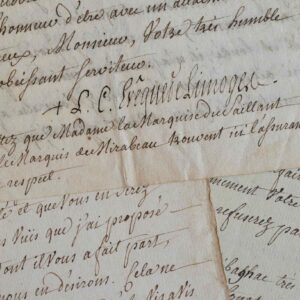 honneur d'etre avec un attache
ieux, Monsieur, Votre tres humble
obeissant serviteur.
+ L. C. Evêque de Limoges.
tez que Madame la Marquise du Saillant
le Marquis de Mirabeau trouvent ici l'assuran
respect.
et que Vous en serez
Vües que j'ai proposé
dont il Vous a fait part,
en desirons. Cela ne
Vis a Vis
nement Votre
refuserez pa
tre